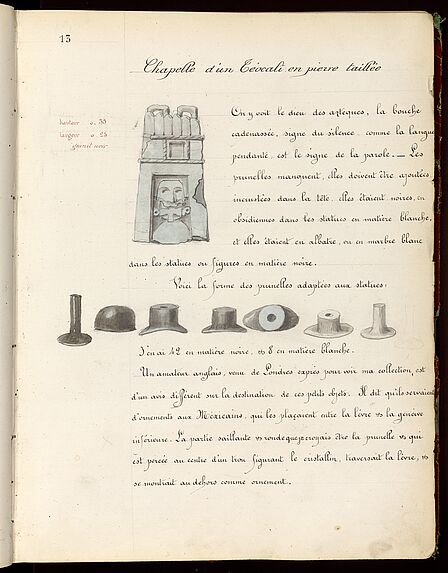 13
Chapelle d'un Téocali en pierre taillée
hauteur 0.35
largeur 0.23
On y voit le dieu des aztèques, la bouche
cadenassée, signe du silence comme la langue
pendante est le signe de la parole. — Les
prunelles manquent, elles doivent être ajoutées
incrustées dans la tête, elles étaient noires, en
obsidiennes dans les statues en matière blanche,
et elles étaient en albatre, ou en marbre blanc
dans les statues ou figures en matière noire.
Voici la forme des prunelles adaptées aux statues.
J'en ai 42 en matière noire, et 8 en matière blanche.
Un amateur anglais, venu de Londres exprès pour voir ma collection, est
d'un avis différent sur la destination de ces petits objets. Il dit qu'ils servaient
d'ornements aux Méxicains, qui les plaçaient entre la lèvre et la gencive
inférieure. La partie saillante et ronde que je croyais être la prunelle et qui
est percée au centre d'un trou figurant le cristallin, traversait la lèvre, et
se montrait au dehors comme ornement.